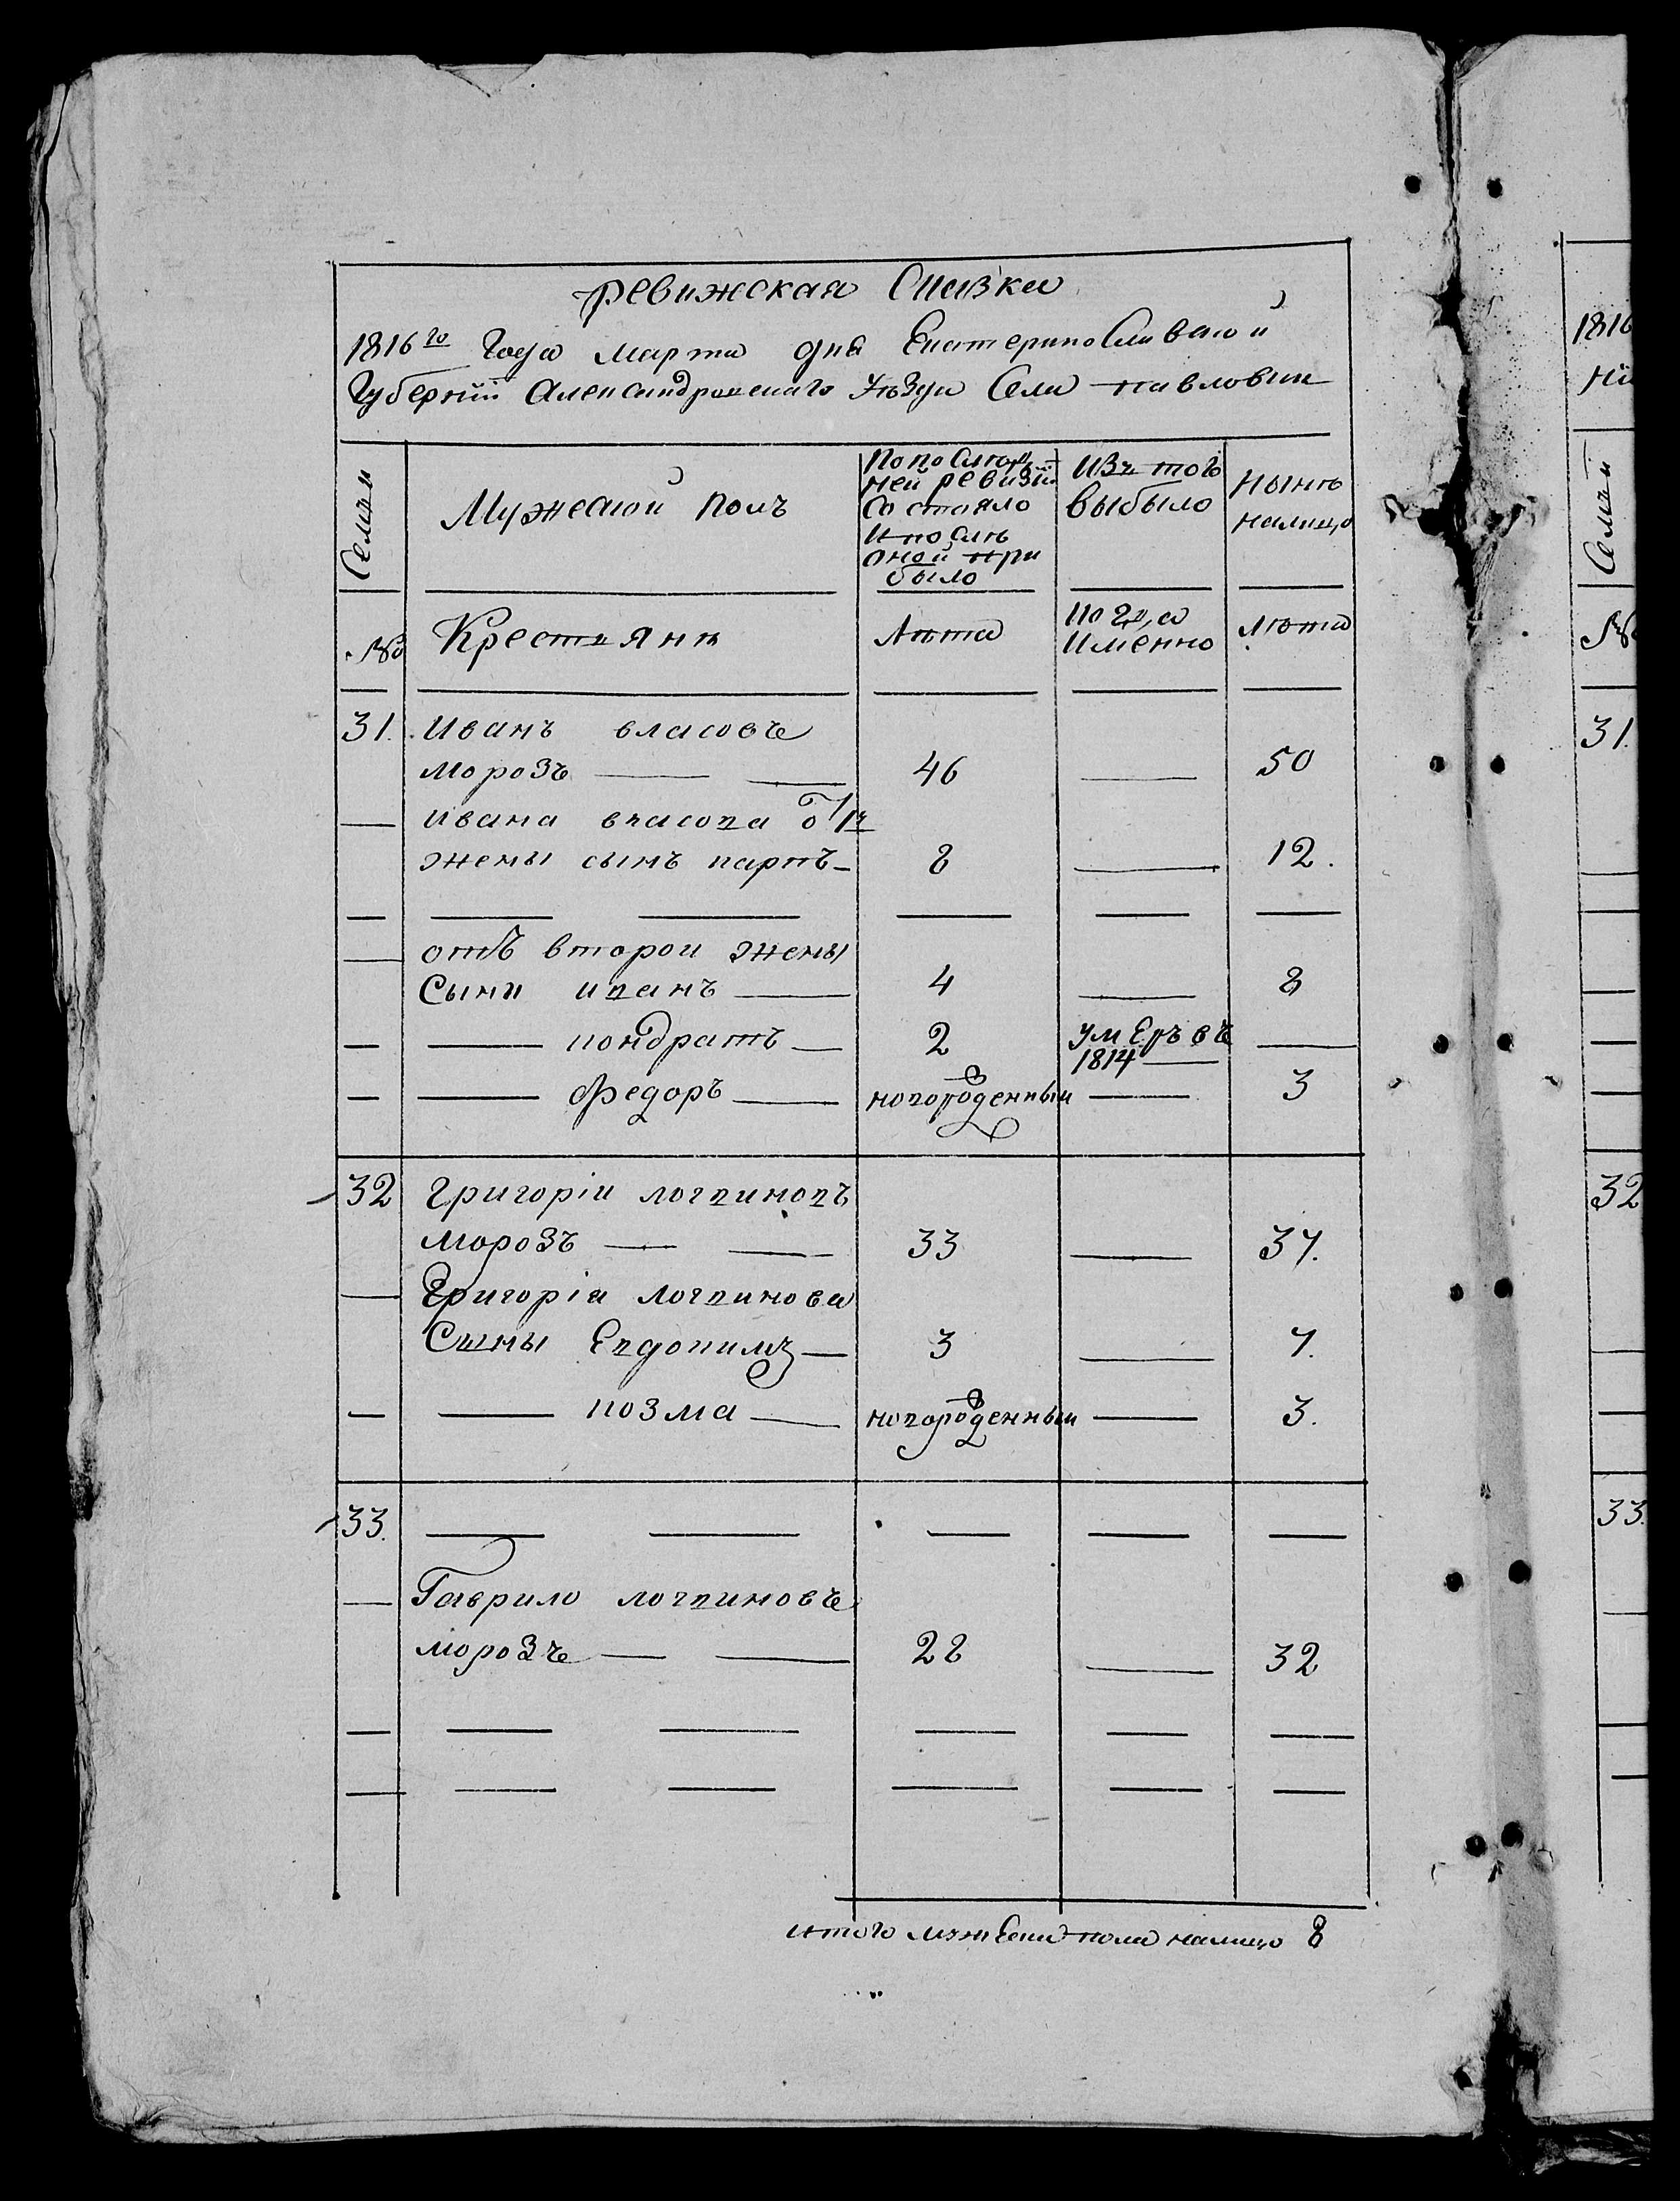 ревижская Сказка
1816го года марта дня Екатеринославской
Губернїи Александровскаго уѣзда Села павловки
Семьи
Мужеской полъ
По послѣд
ней ревизїи
Состояло
и послѣ
оной при
было
Изъ того
выбыло
Нынѣ
налицо
№
Крестьяня
Лѣта
когда
Именно
лѣта
31. Иванъ власовъ
морозъ 46 50
ивана власова отъ 1й
жены сынъ карпъ 8 12.
отъ второй жены
Сыни иванъ 4 8
кондратъ 2 умеръ въ
1814
Федоръ новорожденный 3
32 Григорїй логвиновъ
морозъ 33 37.
Григорїя логвинова
Сыны Евдокимъ 3 7.
козма новорожденный 3.
33.
Гаврило логвиновъ
морозъ 28 32
итого мужеска пола налицо 8
1816
31.
32
33.
Семьи
№